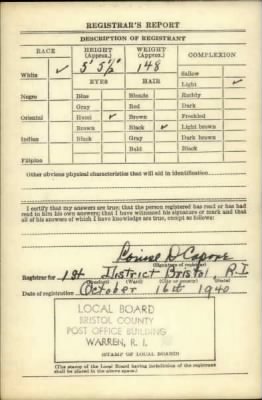 REGISTRAR'S REPORT
DESCRIPTION OF REGISTRANT
RACE HEIGHT (Approx.) WEIGHT (Approx.) COMPLEXION
White ✓ 5' 5½" 148 Sallow
EYES HAIR Light ✓
Negro Blue Blonde Ruddy
Gray Red Dark
Oriental Hazel ✓ Brown Freckled
Brown Black ✓ Light brown
Indian Black Gray Dark brown
Bald Black
Filipino
Other obvious physical characteristics that will aid in identification
I certify that my answers are true; that the person registered has read or has had read to him his own answers; that I have witnessed his signature or mark and that all of his answers of which I have knowledge are true, except as follows:
Louise D Capone
(Signature of registrar)
Registrar for 1st District Bristol, R.I.
(Precinct) (Ward) (City or county) (State)
Date of registration October 16th 1940
LOCAL BOARD
BRISTOL COUNTY
POST OFFICE BUILDING
WARREN, R. I.
(STAMP OF LOCAL BOARD)
(The stamp of the Local Board having jurisdiction of the registrant
shall be placed in the above space.)